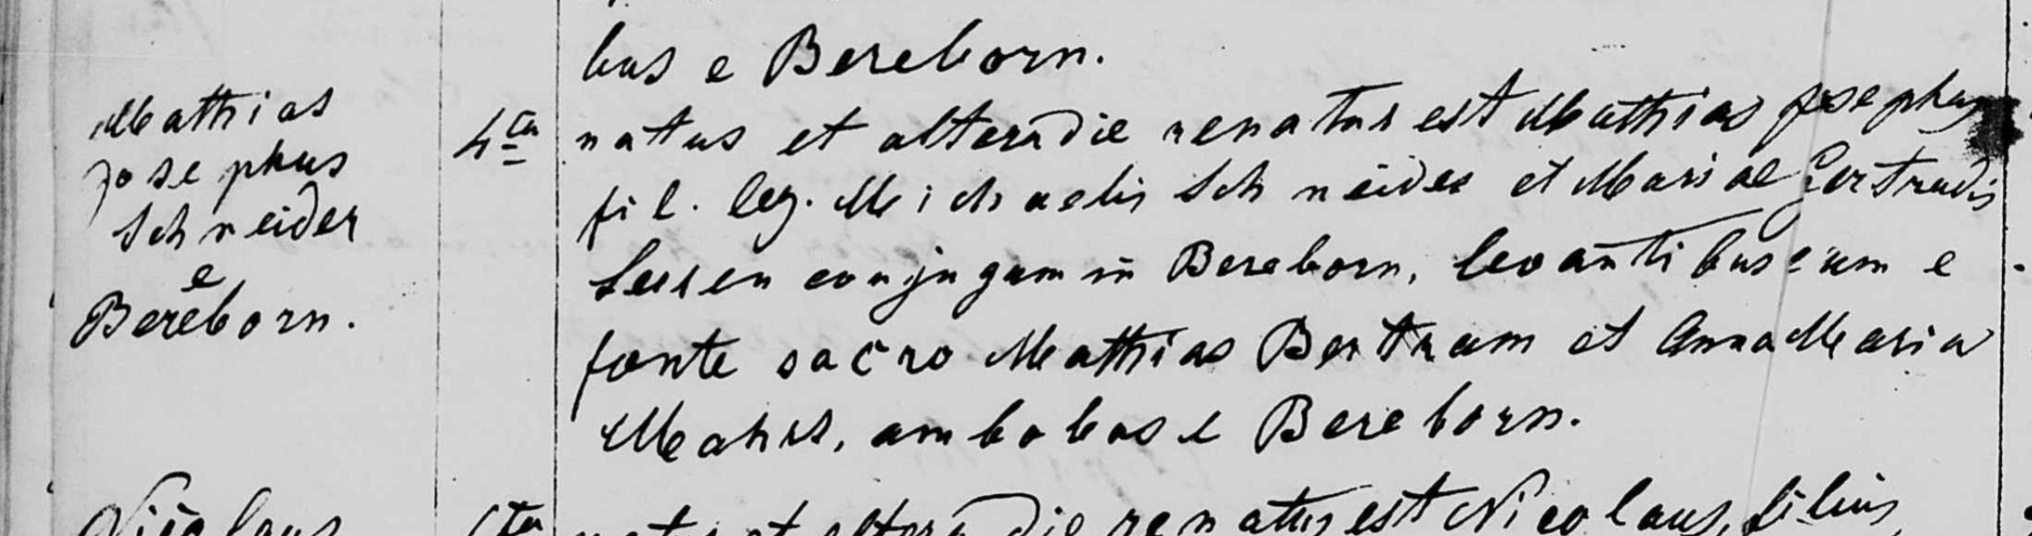 bus e Bereborn.
Mathias
Josephus
Schneider
e
Bereborn.
4ta
natus et altera die renatus est Mathias Josephus
fil. leg. Michaelis Schneider et Mariae Gertrudis
conjugum in Bereborn, levantibus eum e
fonte sacro Mathias Bertram et Anna Maria
ambobus e Bereborn.
Nicolaus
natus et altera die renatus est Nicolaus, filius